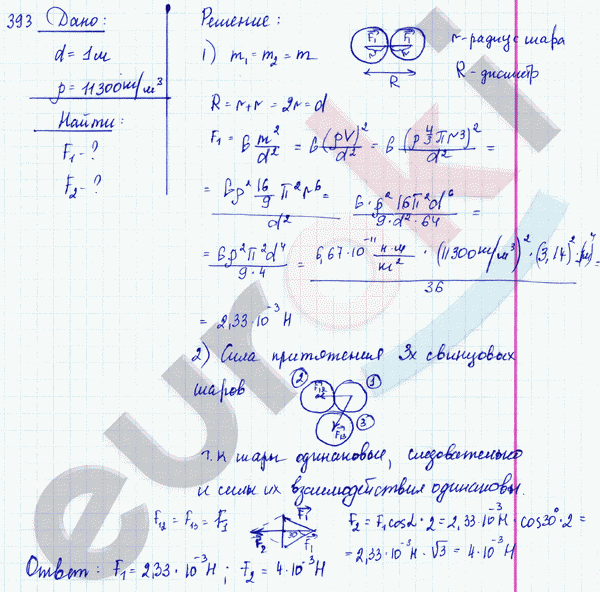 393 Дано:
d = 1 м
ρ = 11300 кг/м³
Найти:
F₁ - ?
F₂ - ?
Решение:
1) m₁ = m₂ = m
F₁ F₁
r r
R
r - радиус шара
R - диаметр
R = r + r = 2r = d
F₁ = G m²/d² = G (ρV)²/d² = G (ρ 4/3 π r³)²/d² =
= Gρ² 16/9 π² r⁶ / d² = G · ρ² 16π² d⁶ / 9 · d² · 64 =
= Gρ²π²d⁴ / 9 · 4 = 6,67 · 10⁻¹¹ н · м/кг² · (11300 кг/м³)² · (3,14)² · (1м)⁴ / 36 =
= 2,33 · 10⁻³ Н
2) Сила притяжения 3х свинцовых
шаров
2 F₁₂ 1
F₁₃ 3
т.к шары одинаковые, следовательно
и силы их взаимодействия одинаковы.
F₁₂ = F₁₃ = F₁
F₁
F₂ 30° F₁
F₂ = F₁ cosα · 2 = 2,33 · 10⁻³ Н · cos30° · 2 =
= 2,33 · 10⁻³ Н · √3 = 4 · 10⁻³ Н
Ответ: F₁ = 2,33 · 10⁻³ Н; F₂ = 4 · 10⁻³ Н
euroki